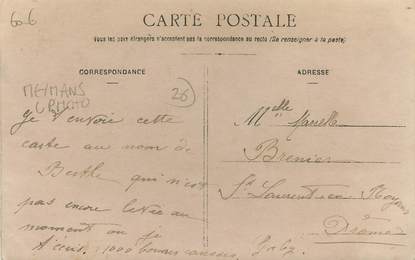 60-6
CARTE POSTALE
Tous les pays étrangers n'acceptent pas la correspondance au recto (Se renseigner à la poste)
CORRESPONDANCE
ADRESSE
MEYMANS
26
Je t'envoie cette
carte au nom de
Berthe qui n'est
pas encore levée au
moment où je
t'écris. 1000 bonnes caresses. Gaby
Melle Marcelle
Brenier
St Laurent en Royans
Drôme